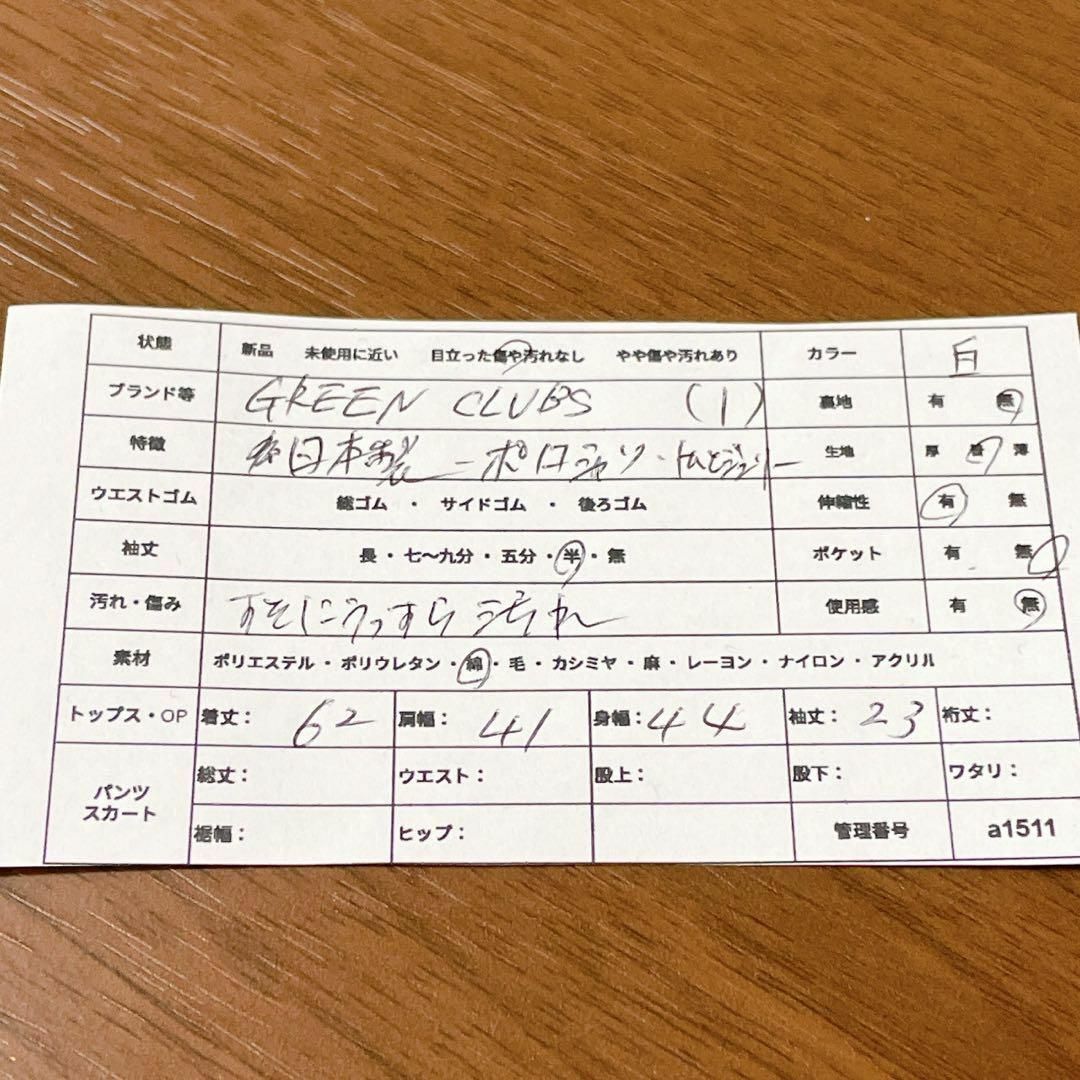 状態 新品 未使用に近い 目立った傷や汚れなし やや傷や汚れあり カラー 白
ブランド等 GREEN CLUBS (1) 裏地 有 無
特徴 日本製 ポロシャツ・トムとジェリー 生地 厚 普 薄
ウエストゴム 総ゴム ・ サイドゴム ・ 後ろゴム 伸縮性 有 無
袖丈 長・七〜九分・五分・半・無 ポケット 有 無
汚れ・傷み すそにうっすらシミ 使用感 有 無
素材 ポリエステル・ポリウレタン・綿・毛・カシミヤ・麻・レーヨン・ナイロン・アクリル
トップス・OP 着丈： 62 肩幅： 41 身幅： 44 袖丈： 23 裄丈：
パンツ スカート 総丈： ウエスト： 股上： 股下： ワタリ：
裾幅： ヒップ： 管理番号 a1511